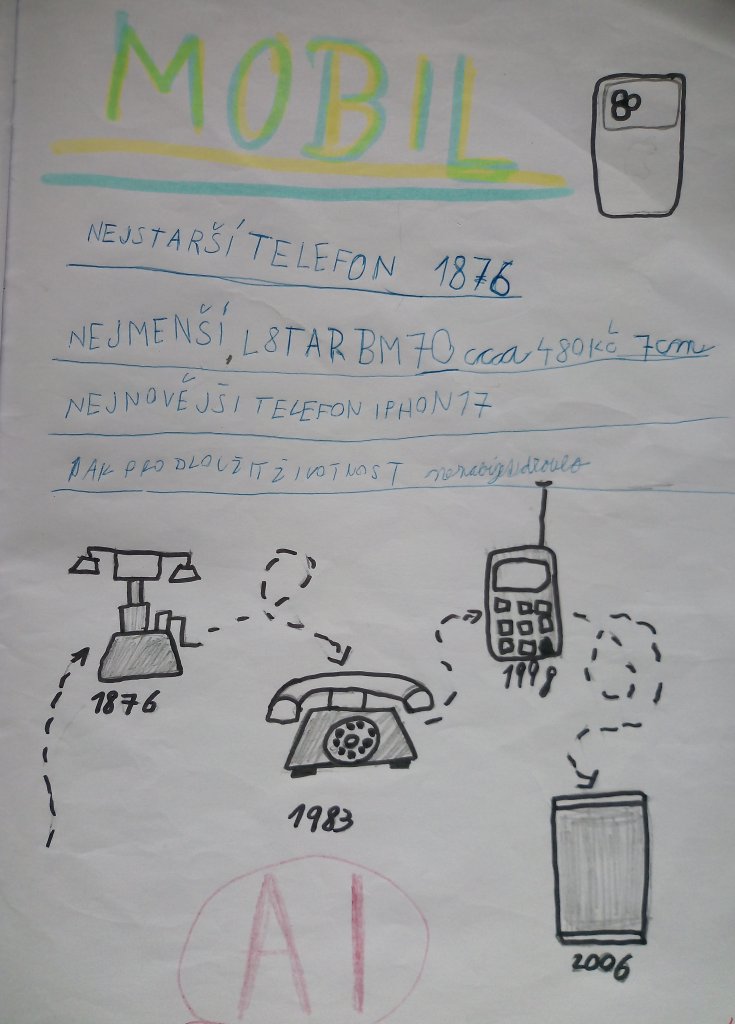 MOBIL
NEJSTARŠÍ TELEFON 1876
NEJMENŠÍ, L8TAR BM70 cca 480Kč 7cm
NEJNOVĚJŠI TELEFON IPHON17
JAK PRODLOUŽIT ŽIVOTNOST
1876
1983
1998
2006
AI